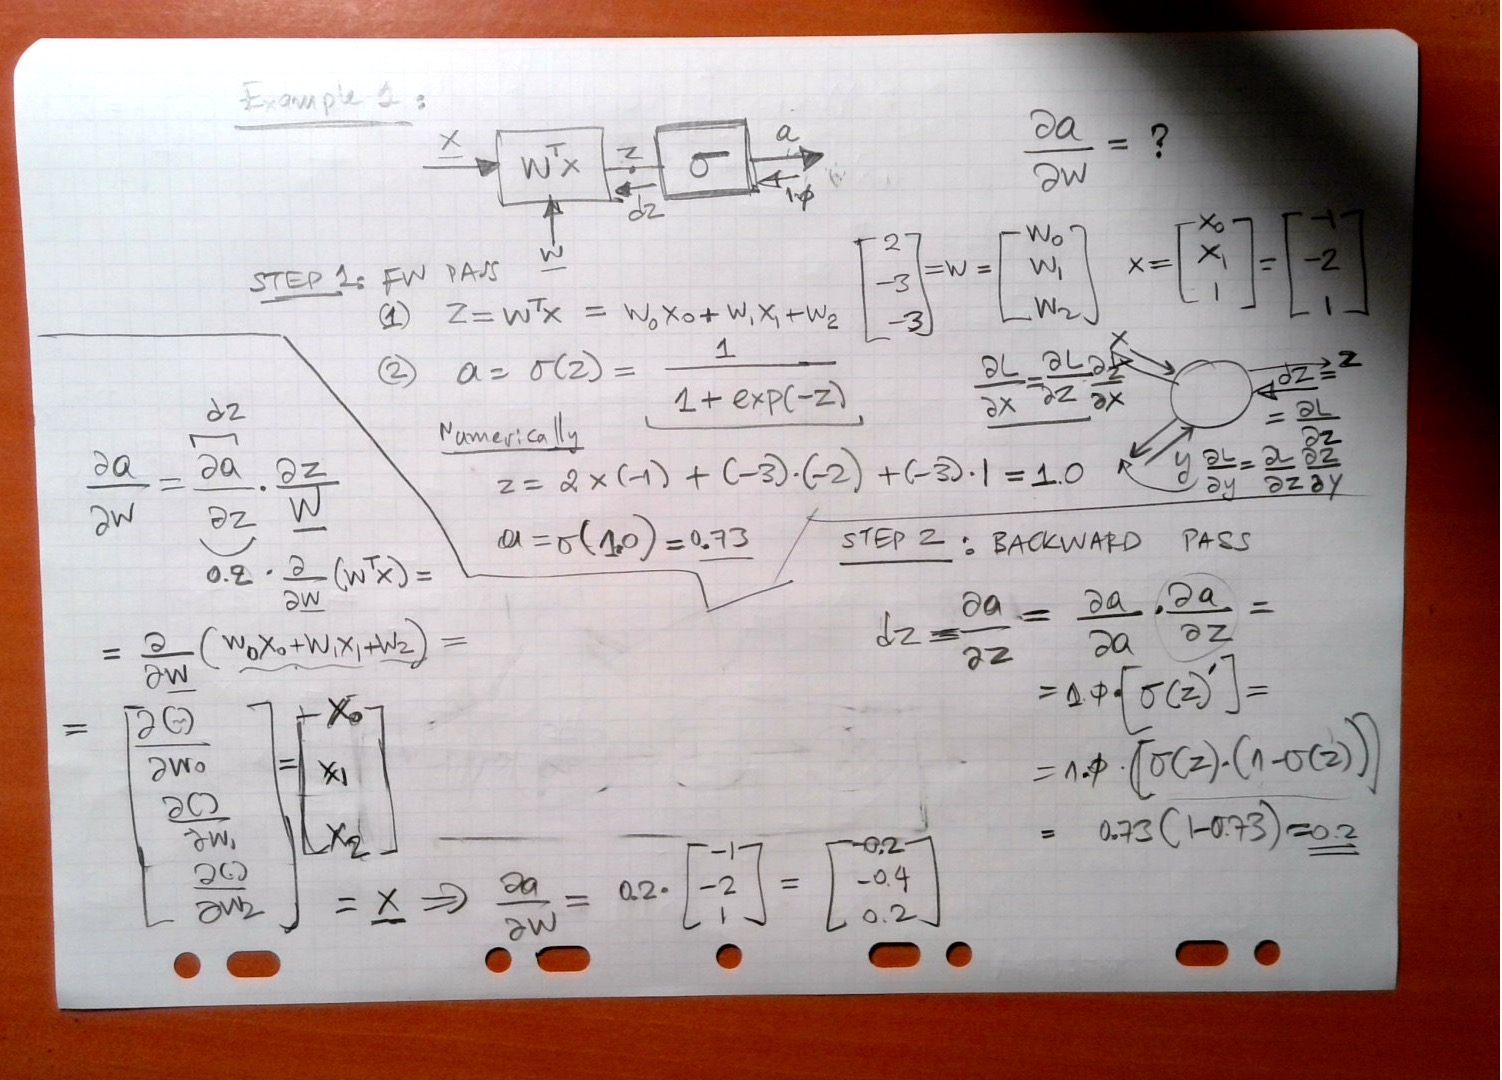 Example 1:
x
WᵀX
z
σ
a
dz
1.φ
w
∂a/∂w = ?
STEP 1: FW PASS
[2 -3 -3] = w = [w₀ w₁ w₂] x = [x₀ x₁ 1] = [-1 -2 1]
(1) z = wᵀx = w₀x₀ + w₁x₁ + w₂
(2) a = σ(z) = 1/(1 + exp(-z))
x
z
∂L/∂x = ∂L/∂z ∂z/∂x
dz =
= ∂L/∂z
y ∂L/∂y = ∂L/∂z ∂z/∂y
Numerically
z = 2 × (-1) + (-3)·(-2) + (-3)·1 = 1.0
a = σ(1.0) = 0.73
dz
∂a/∂w = ∂a/∂z · ∂z/w
0.2 · ∂/∂w (wᵀx) =
= ∂/∂w (w₀x₀ + w₁x₁ + w₂) =
= [∂(··)/∂w₀ ∂()/∂w₁ ∂(·)/∂w₂] = [x₀ x₁ x₂]
= x ⇒ ∂a/∂w = 0.2 · [-1 -2 1] = [-0.2 -0.4 0.2]
STEP 2: BACKWARD PASS
dz = ∂a/∂z = ∂a/∂a · ∂a/∂z =
= 1.φ · [σ(z)'] =
= 1.φ · [σ(z)·(1-σ(z))]
= 0.73(1-0.73) = 0.2